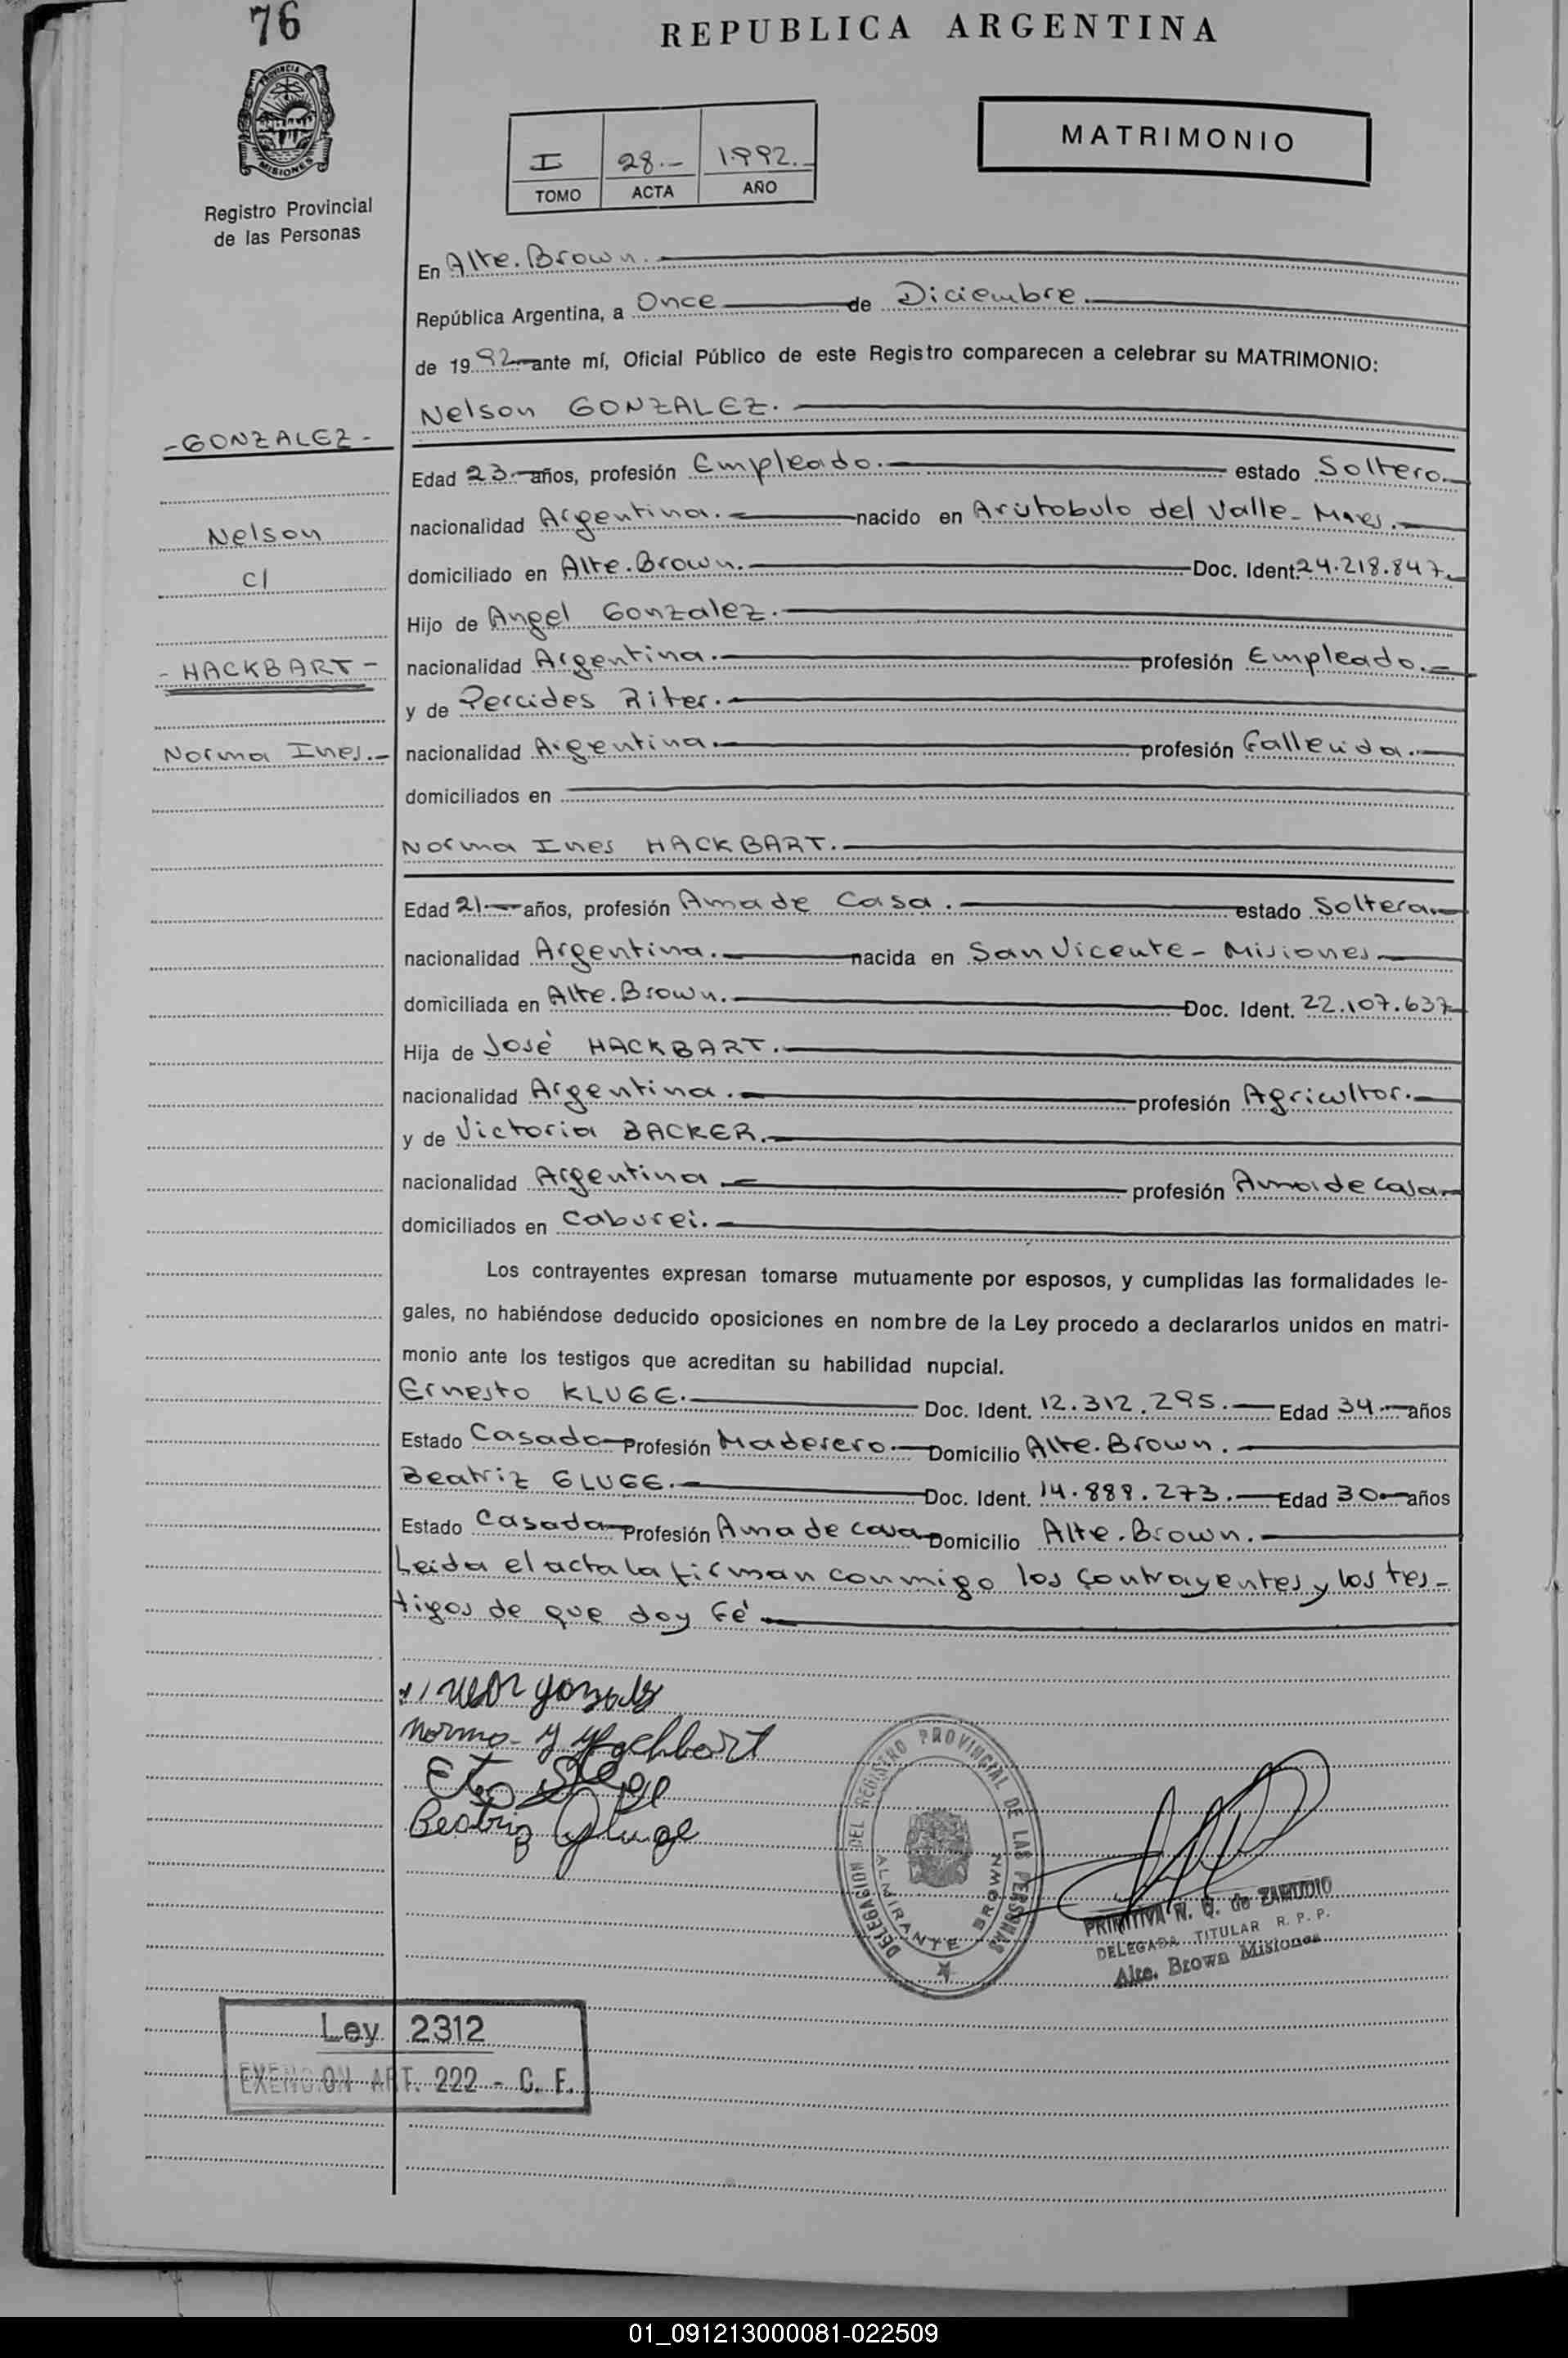 76
REPUBLICA ARGENTINA
PROVINCIA DE
MISIONES
Registro Provincial
de las Personas
I 28.- 1992.-
TOMO ACTA AÑO
MATRIMONIO
En Alte. Brown.
República Argentina, a Once de Diciembre.
de 1992 ante mí, Oficial Público de este Registro comparecen a celebrar su MATRIMONIO:
Nelson GONZALEZ.
- GONZALEZ -
Edad 23.- años, profesión Empleado. estado Soltero.
nacionalidad Argentina. nacido en Aristobulo del Valle - Mnes.
Nelson
domiciliado en Alte. Brown. Doc. Ident. 24.218.847.
c/
Hijo de Angel Gonzalez.
- HACKBART -
nacionalidad Argentina. profesión Empleado.-
y de Percides Riter.
Norma Ines.-
nacionalidad Argentina. profesión Fallecida.
domiciliados en
Norma Ines HACKBART.
Edad 21 años, profesión Ama de Casa. estado Soltera.
nacionalidad Argentina. nacida en San Vicente - Misiones
domiciliada en Alte. Brown. Doc. Ident. 22.107.637
Hija de José HACKBART.
nacionalidad Argentina. profesión Agricultor.
y de Victoria BACKER.
nacionalidad Argentina profesión Ama de casa
domiciliados en Caburei.
Los contrayentes expresan tomarse mutuamente por esposos, y cumplidas las formalidades le-
gales, no habiéndose deducido oposiciones en nombre de la Ley procedo a declararlos unidos en matri-
monio ante los testigos que acreditan su habilidad nupcial.
Ernesto KLUGE. Doc. Ident. 12.312.295. Edad 34 años
Estado Casado Profesión Maderero. Domicilio Alte. Brown.
Beatriz GLUGE. Doc. Ident. 14.889.273. Edad 30 años
Estado Casada Profesión Ama de casa Domicilio Alte. Brown.
Leida el acta la firman conmigo los contrayentes y los tes-
tigos de que doy fé
Norma
Beatriz Gluge
DELEGACION DEL REGISTRO PROVINCIAL DE LAS PERSONAS
ALMIRANTE BROWN
PRIMITIVA N. G. de ZAMUDIO
DELEGADA TITULAR R. P. P.
Alte. Brown Misiones
Ley 2312
EXENCION ART. 222 - C. F.
01_091213000081-022509